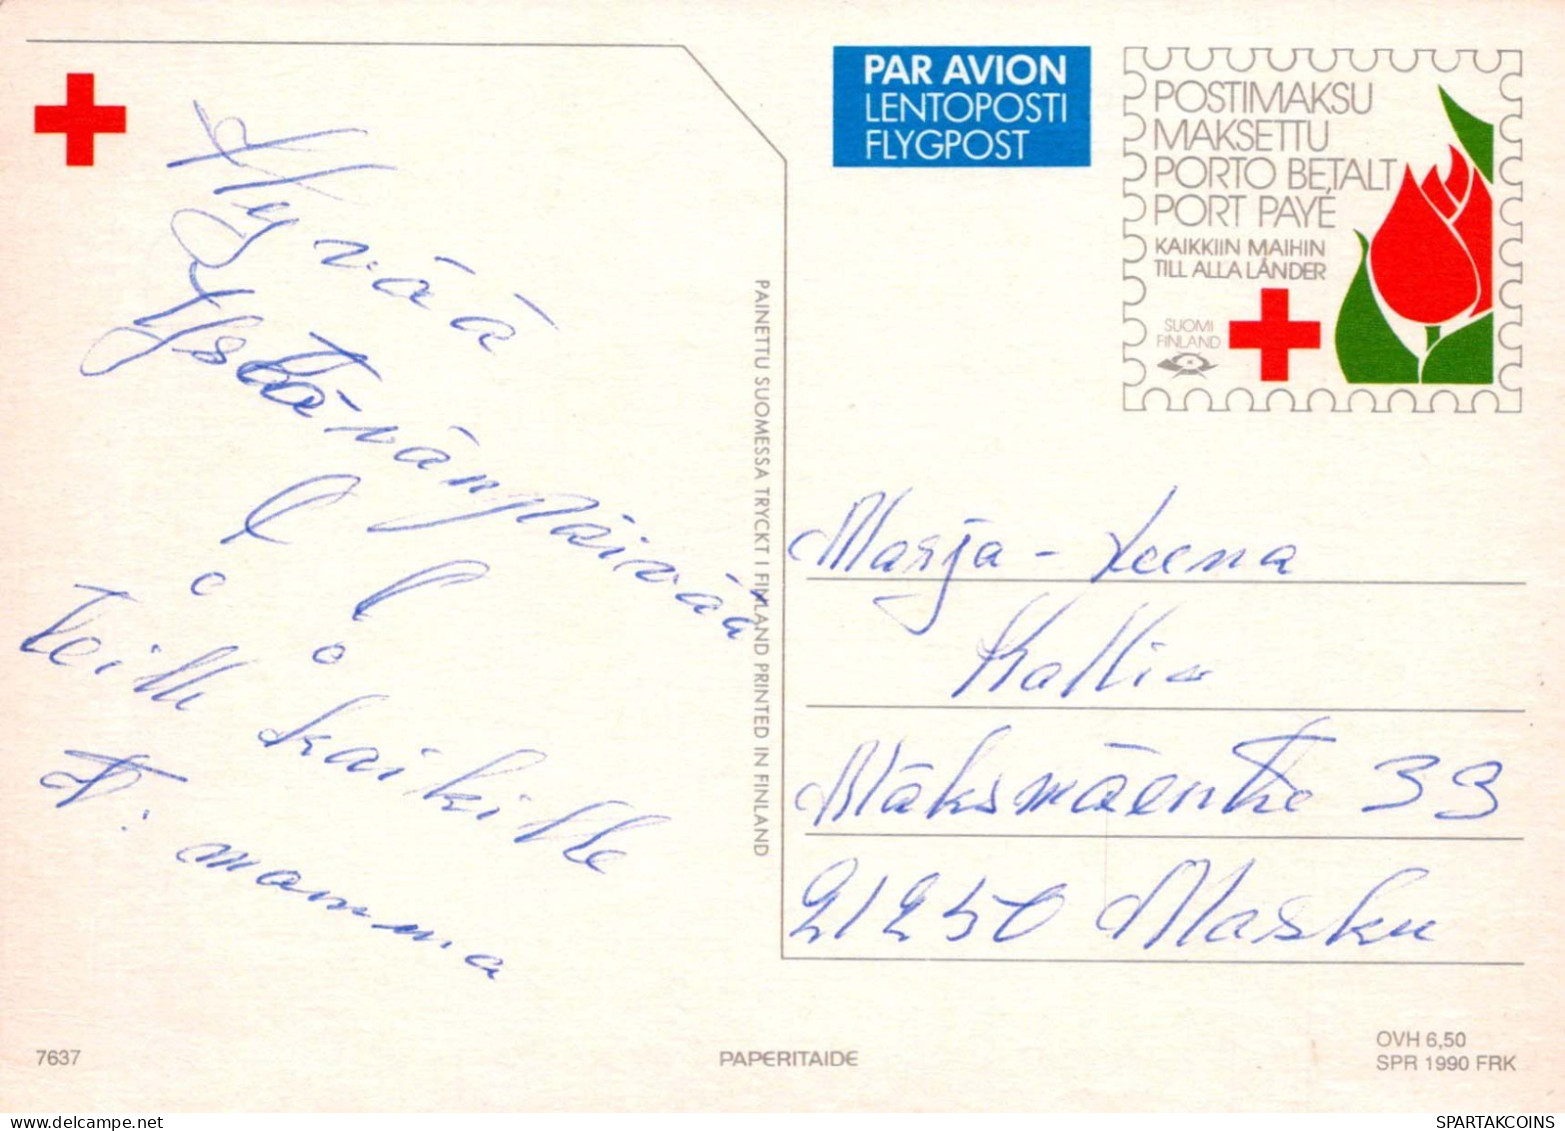 Hyvää
Ystävänpäivää
Teille kaikille
T: mamma
PAINETTU SUOMESSA TRYCKT I FINLAND PRINTED IN FINLAND
PAR AVION
LENTOPOSTI
FLYGPOST
POSTIMAKSU
MAKSETTU
PORTO BETALT
PORT PAYÉ
KAIKKIIN MAIHIN
TILL ALLA LÄNDER
SUOMI
FINLAND
Marja-Leena
Kallio
Mäksmäentie 33
21250 Masku
7637
PAPERITAIDE
OVH 6,50
SPR 1990 FRK
SPARTAKCOINS